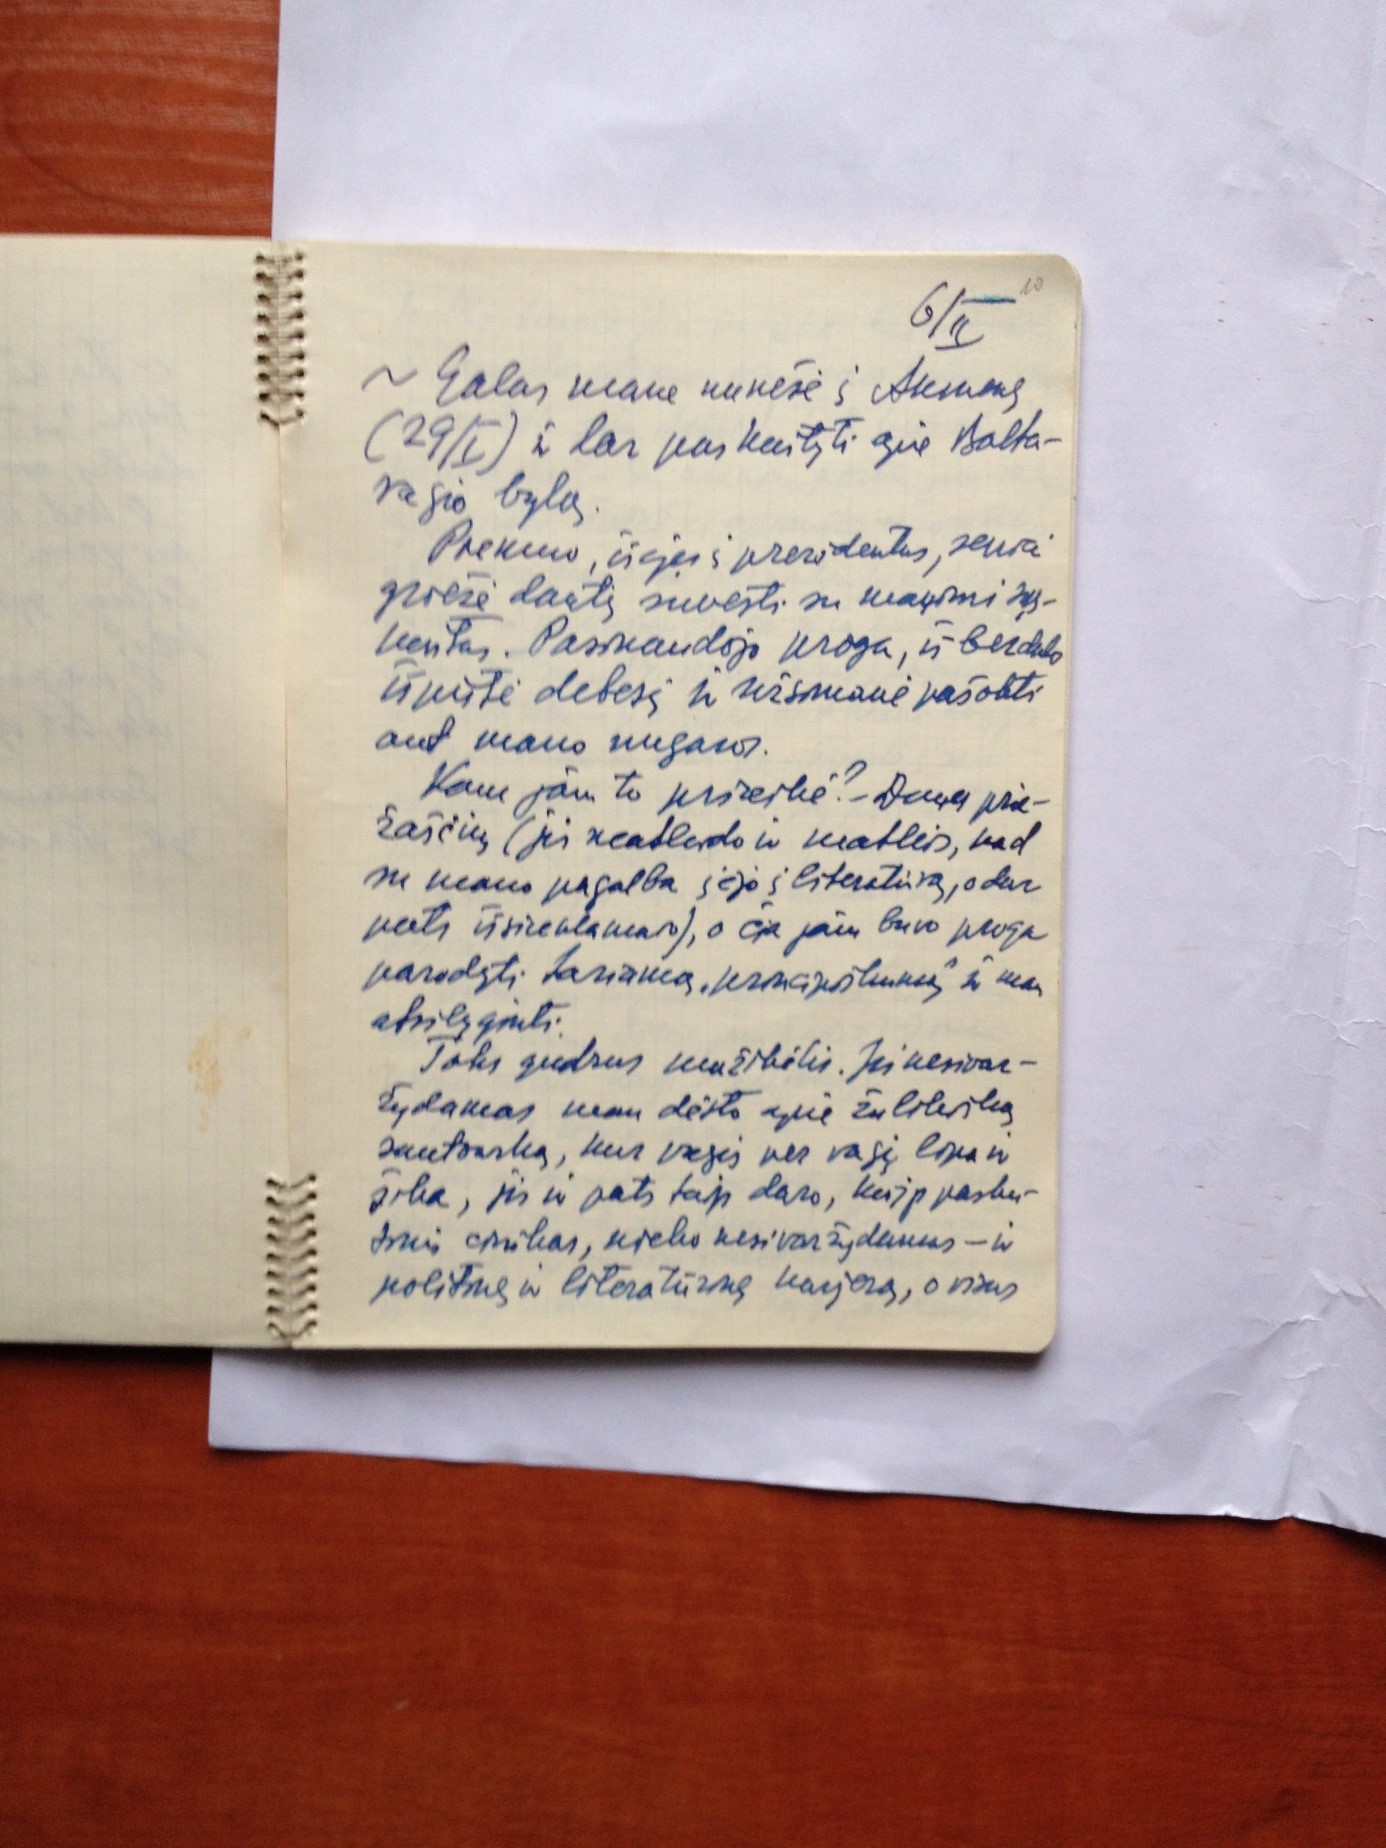 10
6/II
~ Galas mane nunešė į Akmenę
(29/I) ir dar paskaityti apie Balta-
ragio bylą.
Poekmo, išėjęs į prezidentus, seniai
griežė dantį suvesti su manimi są-
skaitas. Pasinaudojo proga, iš
išpūtė debesį ir užsimanė pašokti
ant mano nugaros.
Kam jam to prireikė? – Daug prie-
žasčių (jis neatleido ir neatleis, kad
su mano pagalba įėjo į literatūrą, o dar
pats išsireklamavo), o čia jam buvo proga
parodyti tariamą „principiškumą" ir man
atsilyginti.
Toks gudrus mužikėlis. Jis nesivar-
žydamas man dėsto apie žulikišką
santvarką, kur vagis per vagį lipa ir
, jis ir pats taip daro, kaip pasku-
tinis cinikas, nieko nesivaržydamas – ir
politinę ir literatūrinę karjerą, o visus